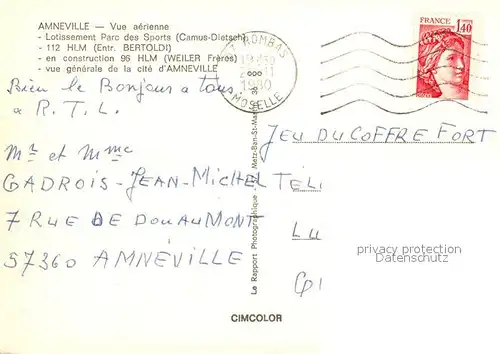 AMNEVILLE — Vue aérienne
- Lotissement Parc des Sports (Camus-Dietsch)
- 112 HLM (Entr. BERTOLDI)
- en construction 96 HLM (WEILER Frères)
- vue générale de la cité d'AMNEVILLE
Bien le Bonjour a tous,
a R.T.L.
Mr et Mme
GADROIS-JEAN-MICHEL
7 RUE DE DOUAUMONT
57360 AMNÉVILLE
ROMBAS
1980
MOSELLE
FRANCE
1,40
JEU DU COFFRE FORT
TÉL
LU
privacy protection
Datenschutz
Le Rapport Photographique
Metz-Ban-St-Martin
CIMCOLOR